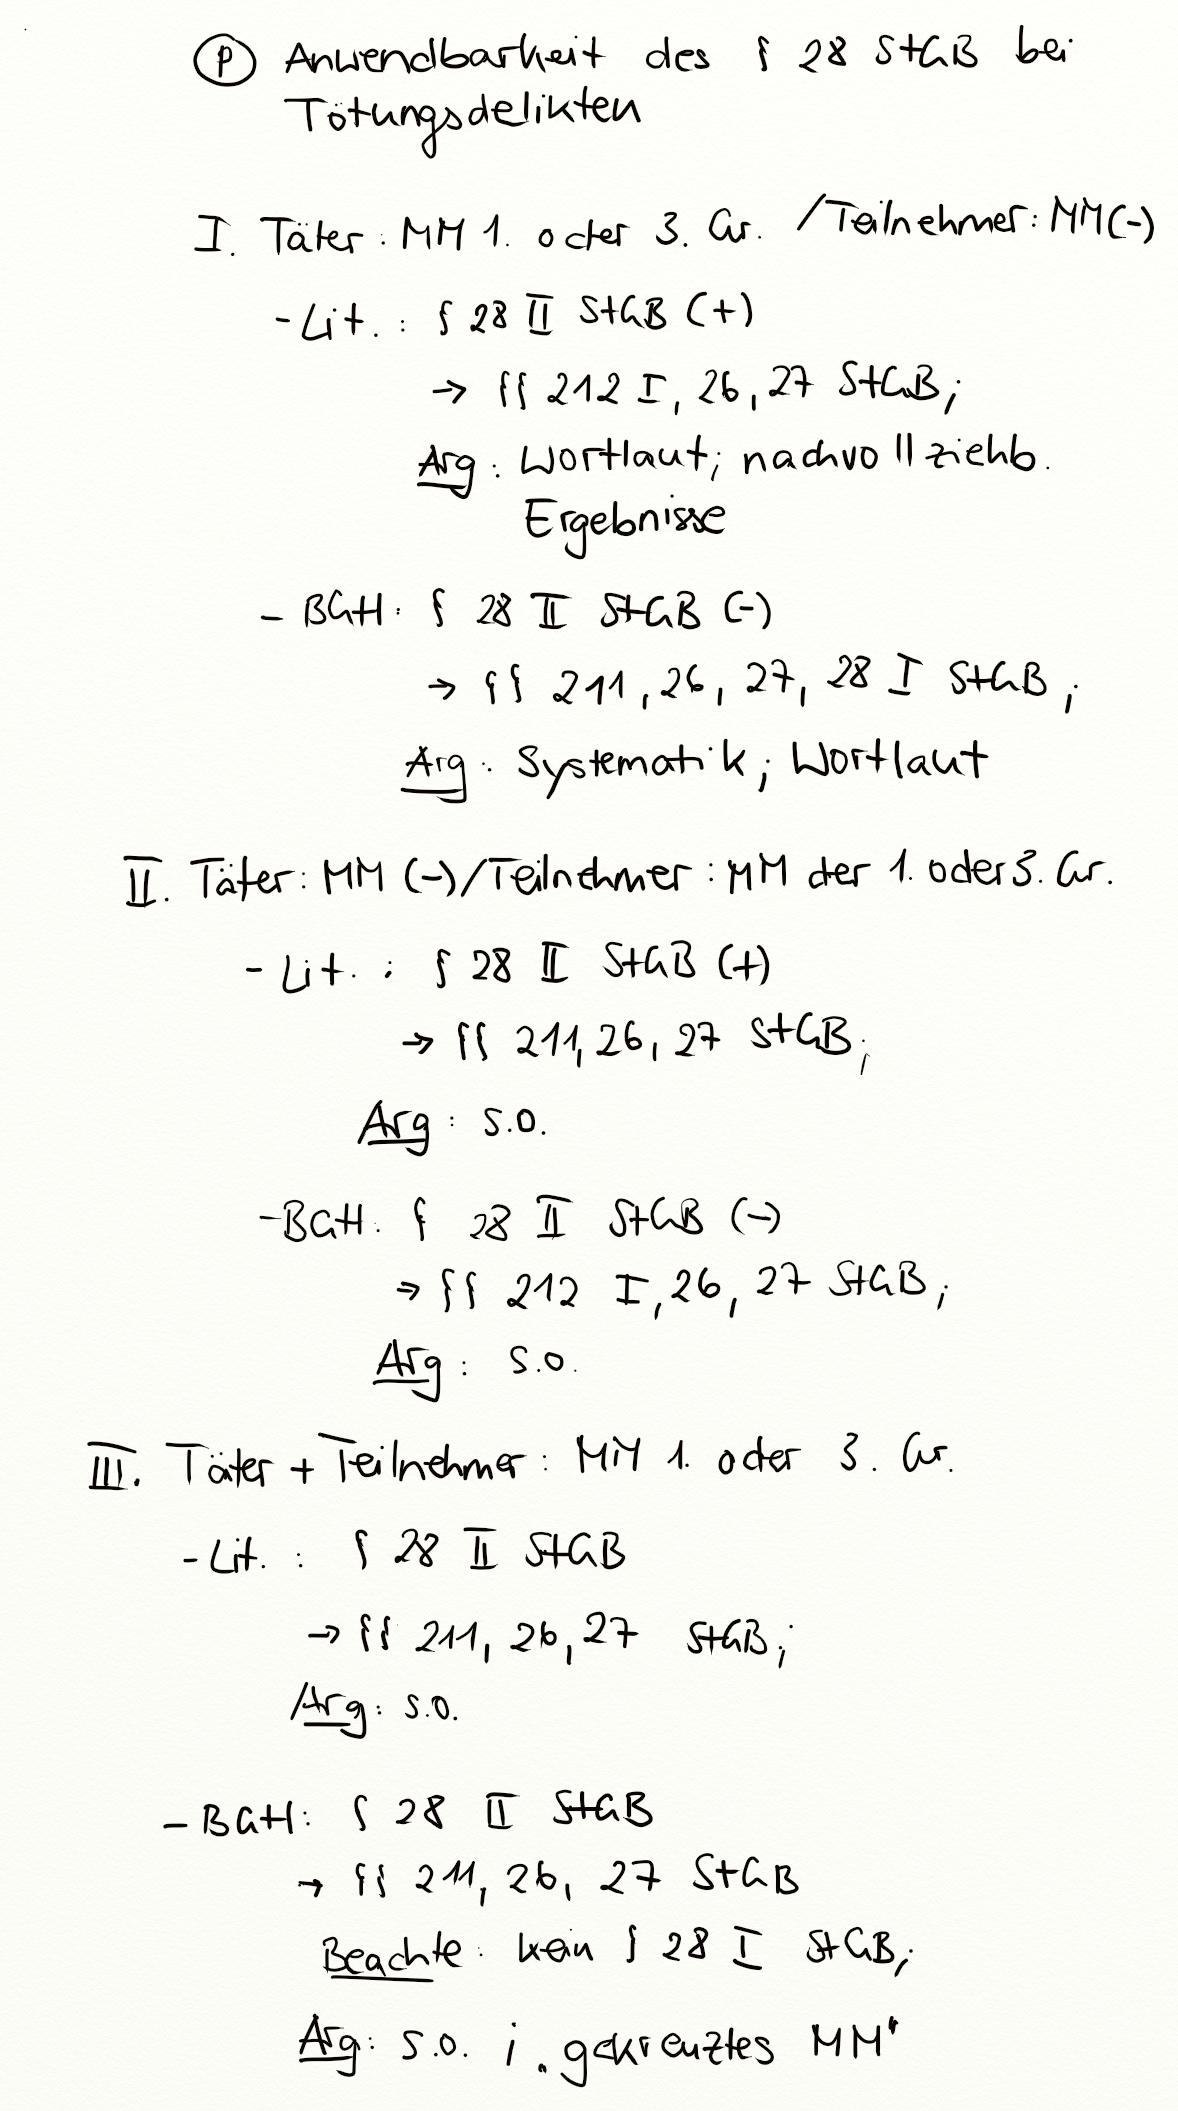 Ⓟ Anwendbarkeit des § 28 StGB bei
Tötungsdelikten
I. Täter: MM 1. oder 3. Gr. /Teilnehmer: MM(-)
- Lit.: § 28 II StGB (+)
→ §§ 212 I, 26, 27 StGB;
Arg: Wortlaut; nachvollziehb.
Ergebnisse
- BGH: § 28 II StGB (-)
→ §§ 211, 26, 27, 28 I StGB;
Arg: Systematik; Wortlaut
II. Täter: MM (-)/Teilnehmer: MM der 1. oder 3. Gr.
- Lit.: § 28 II StGB (+)
→ §§ 211, 26, 27 StGB;
Arg: s.o.
- BGH: § 28 II StGB (-)
→ §§ 212 I, 26, 27 StGB;
Arg: s.o.
III. Täter + Teilnehmer: MM 1. oder 3. Gr.
- Lit.: § 28 II StGB
→ §§ 211, 26, 27 StGB;
Arg: s.o.
- BGH: § 28 II StGB
→ §§ 211, 26, 27 StGB
Beachte: kein § 28 I StGB;
Arg: s.o. ; „gekreuztes MM"